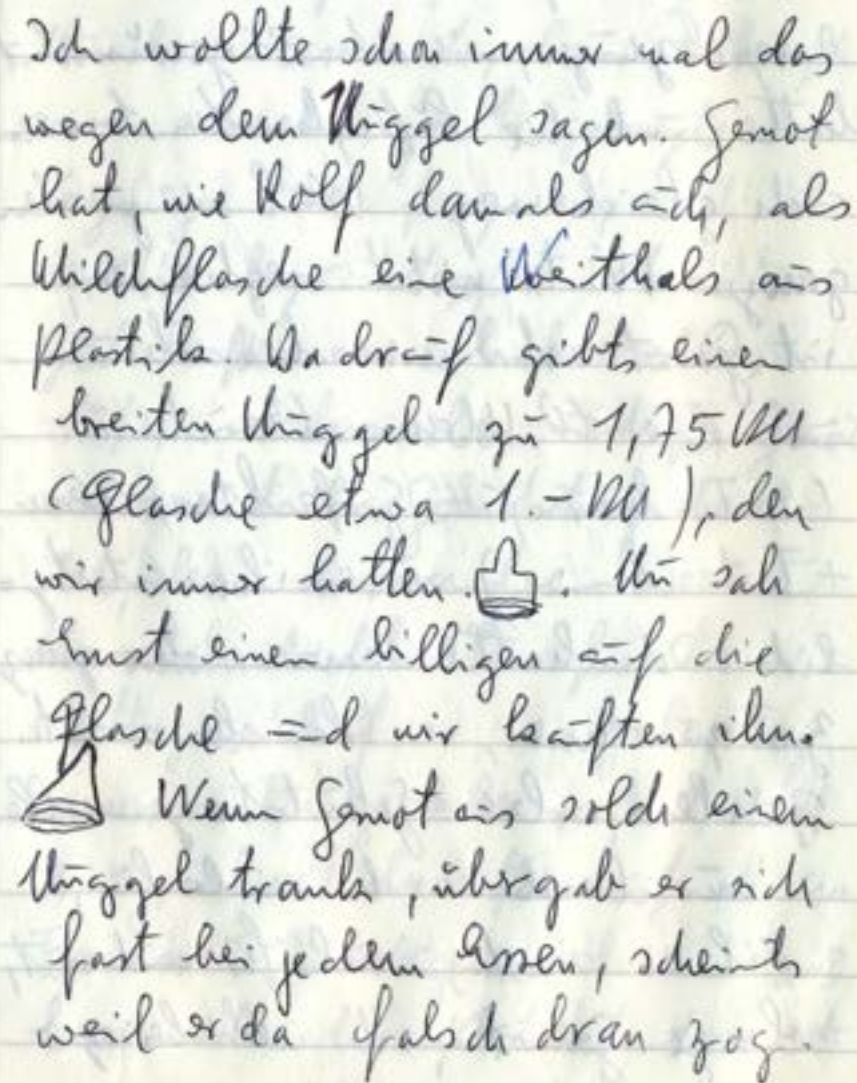 Ich wollte schon immer mal das
wegen dem Nuggel sagen. Gernot
hat, wie Rolf damals auch, als
Milchflasche eine Weithals aus
Plastik. Da drauf gibts einen
breiten Nuggel zu 1,75 DM
(Flasche etwa 1.- DM), den
wir immer hatten. . Nu sah
Ernst einen billigen auf die
Flasche und wir kauften ihn.
Wenn Gernot aus solch einem
Nuggel trank, übergab er sich
fast bei jedem Essen, scheints
weil er da falsch dran zog.